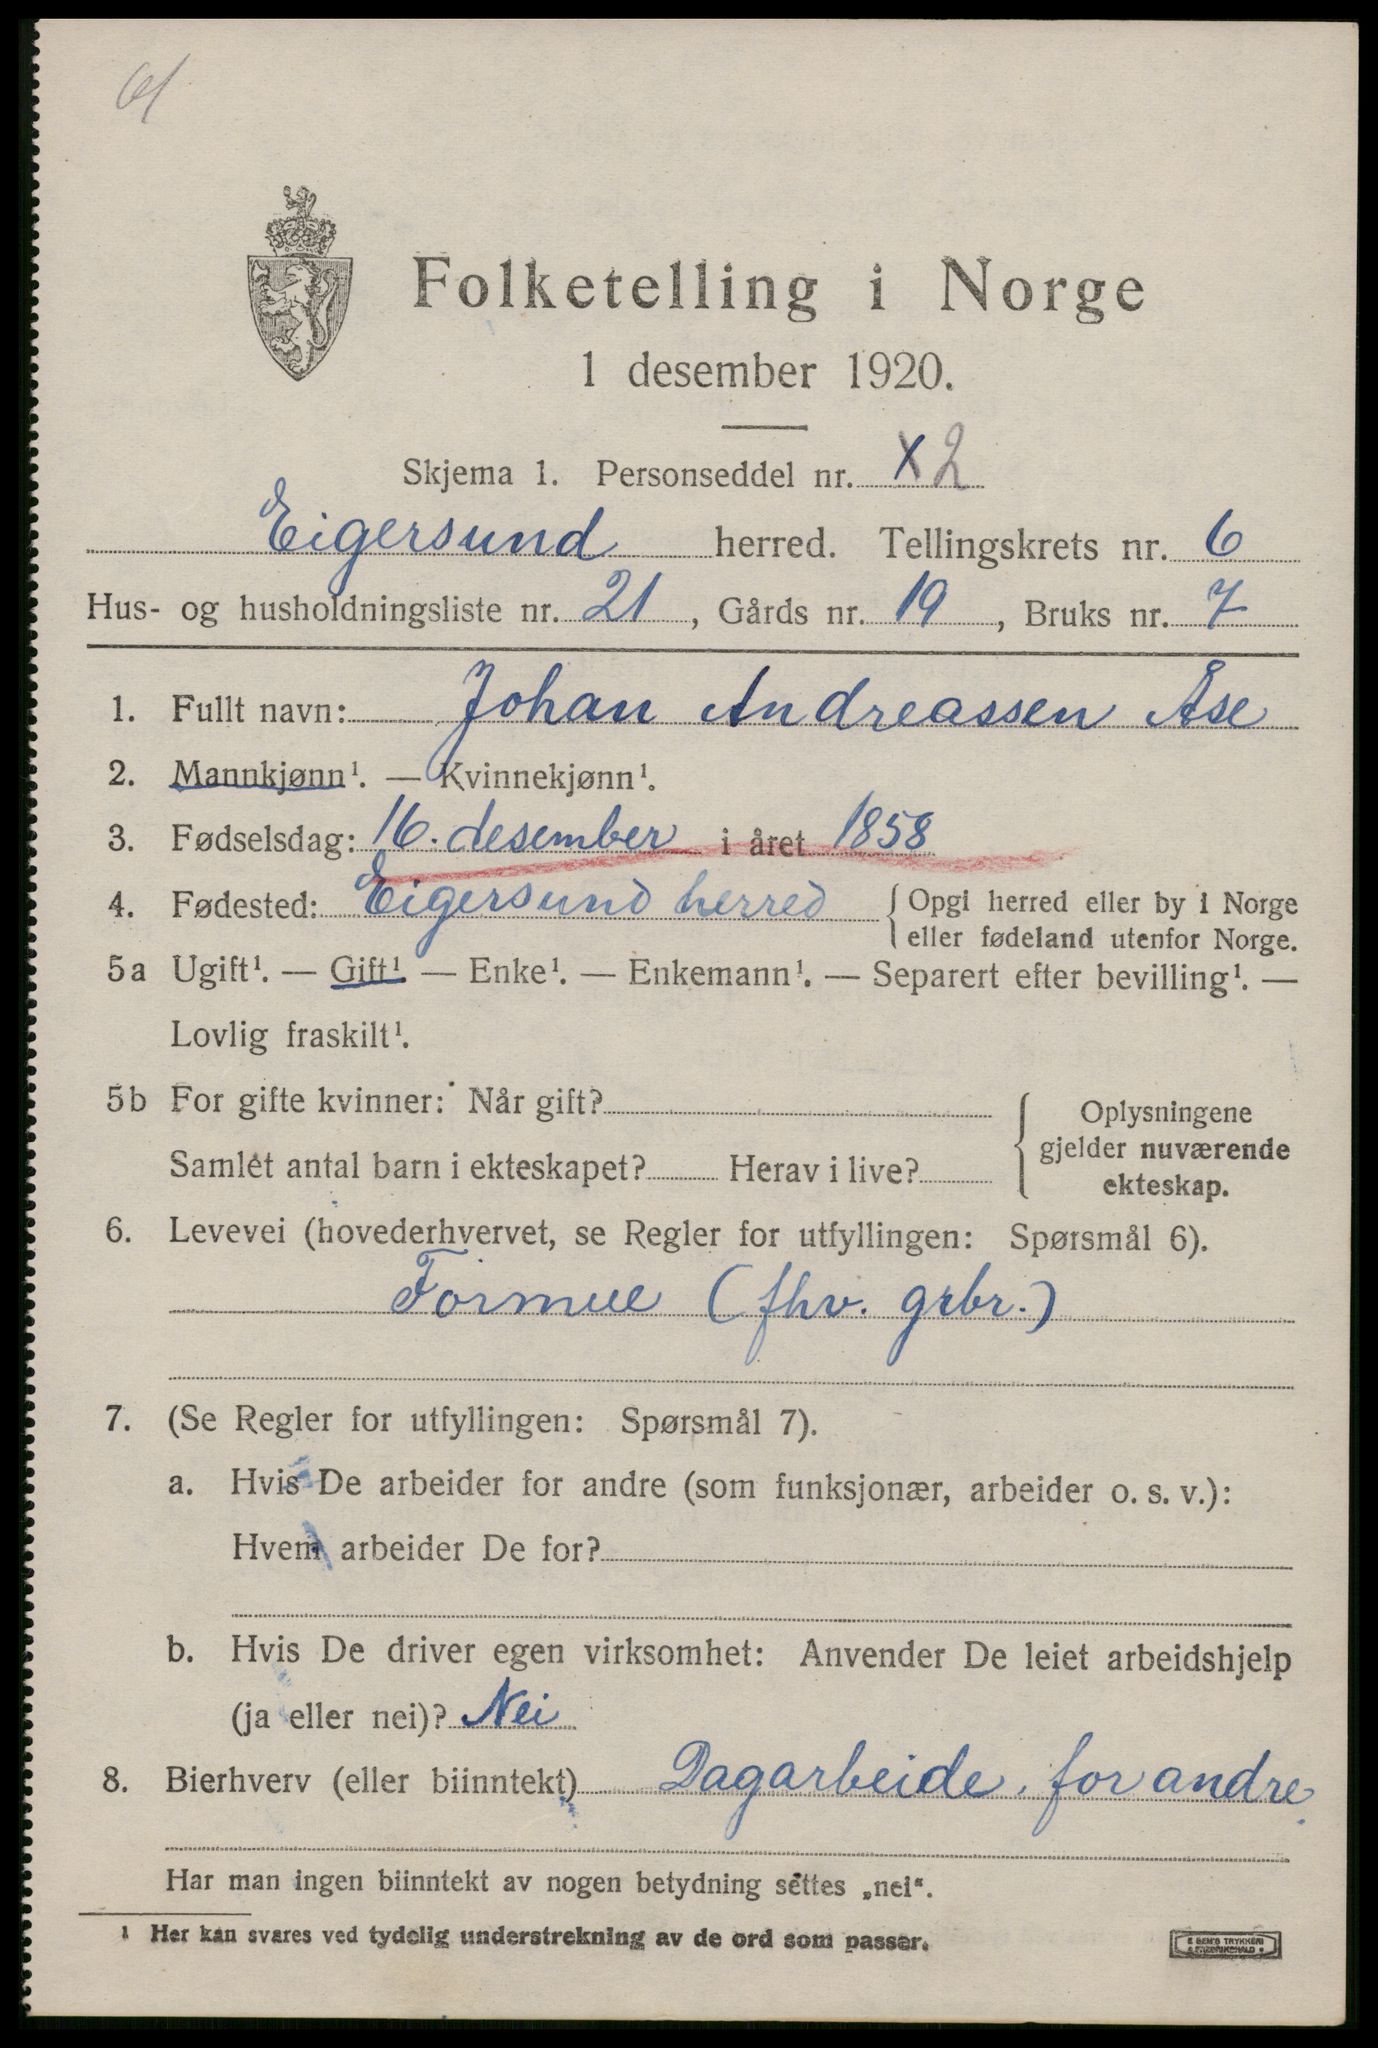 Folketelling i Norge
1 desember 1920.
Skjema 1. Personseddel nr. X 2
Eigersund herred. Tellingskrets nr. 6
Hus- og husholdningsliste nr. 21, Gårds nr. 19, Bruks nr. 7
1. Fullt navn: Johan Andreassen Åse
2. Mannkjønn¹. — Kvinnekjønn¹.
3. Fødselsdag: 16. desember i året 1858
4. Fødested: Eigersund herred { Opgi herred eller by i Norge
eller fødeland utenfor Norge.
5a Ugift¹. — Gift¹ — Enke¹. — Enkemann¹. — Separert efter bevilling¹. —
Lovlig fraskilt¹.
5b For gifte kvinner: Når gift?
Samlet antal barn i ekteskapet? Herav i live?
Oplysningene
gjelder nuværende
ekteskap.
6. Levevei (hovederhvervet, se Regler for utfyllingen: Spørsmål 6).
Formue (fhv. grbr.)
7. (Se Regler for utfyllingen: Spørsmål 7).
a. Hvis De arbeider for andre (som funksjonær, arbeider o. s. v.):
Hvem arbeider De for?
b. Hvis De driver egen virksomhet: Anvender De leiet arbeidshjelp
(ja eller nei)? Nei
8. Bierhverv (eller biinntekt) Dagarbeide for andre.
Har man ingen biinntekt av nogen betydning settes „nei“.
1 Her kan svares ved tydelig understrekning av de ord som passer.